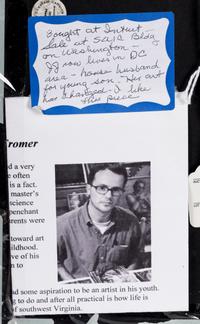 Bought at Intuit
Sale at Bldg
on Washington -
now lives in DC
area - house husband
for young son - His art
has changed - I like
this piece
romer
d a very
e often
is a fact.
master's
science
penchant
rents were
toward art
ildhood.
ve of his
n to
d some aspiration to be an artist in his youth.
g to do and after all practical is how life is
f southwest Virginia.